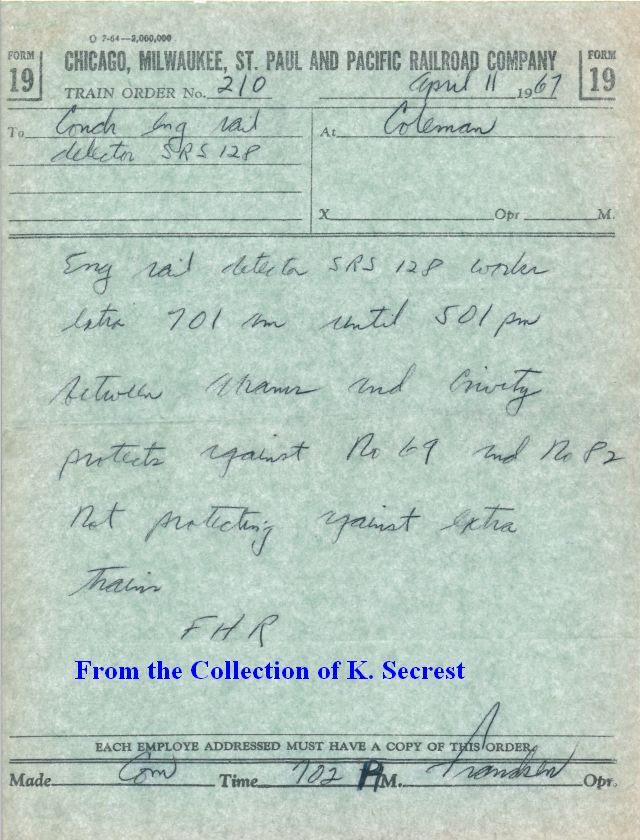 O 7-64—2,000,000
FORM 19 CHICAGO, MILWAUKEE, ST. PAUL AND PACIFIC RAILROAD COMPANY FORM 19
TRAIN ORDER No. 210 April 11 1967
To Condr Eng rail At Coleman
detector SRS 128
X Opr M.
Eng rail detector SRS 128 works
extra 701 am until 501 pm
between Abrams and Crivitz
protects against No 69 and No 82
Not protecting against extra
trains
FHR
From the Collection of K. Secrest
EACH EMPLOYE ADDRESSED MUST HAVE A COPY OF THIS ORDER
Made Com Time 702 PM. Opr.